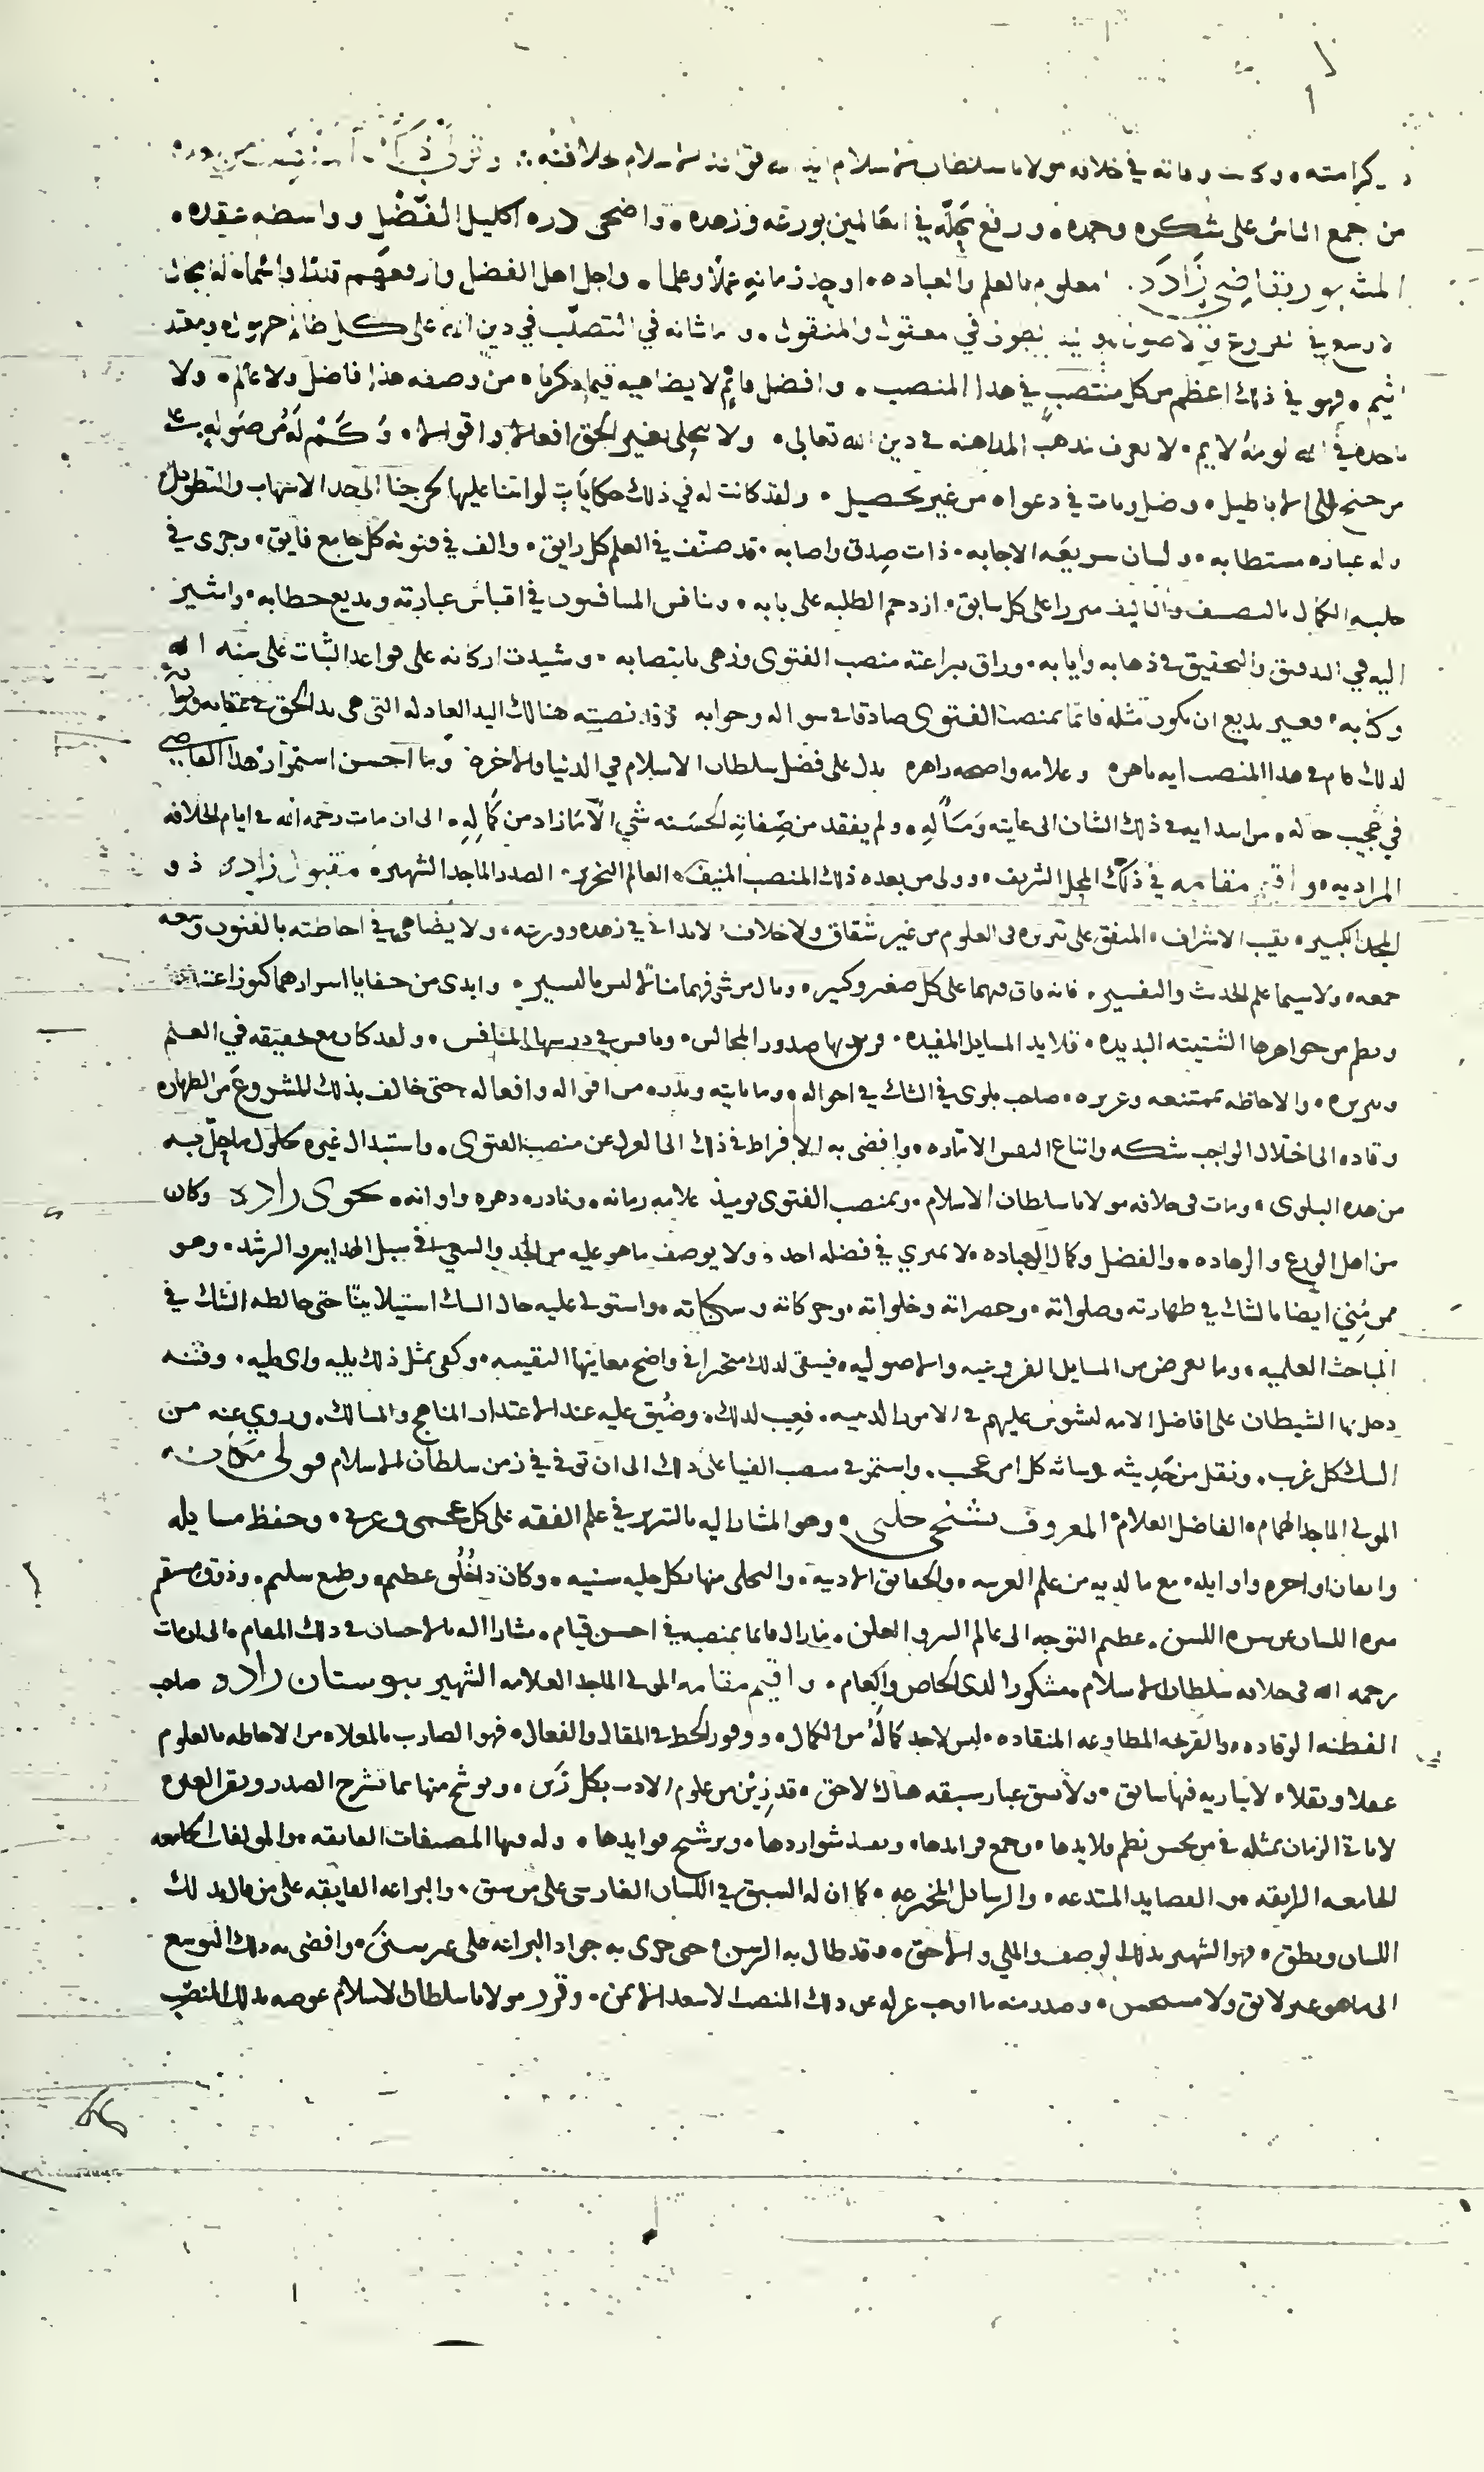 كرامته وكانت وفاته في خلافه مولانا سلطان الاسلام
من جمع الناس على شكره وحمده ورفع محله في العالمين بورعه وزهده واضحى دره اكليل الفضل وواسطه عقده
المشهور بقاضي زاده معلوم بالعلم والعباده اوحد زمانه عملا وعلما واجل اهل الفضل وارفعهم قدرا واسماه له مجال
لا وسع في الفروع والاصول في معقول والمنقول وما شانه في التصلب في دين الله على كل
اثيم فهو في ذلك اعظم من كل منتصب في هذا المنصب وافضل لا يضاهيه فيما ذكرناه من وصفه هذا فاضل ولا عالم ولا
تاخذه في الله لومة لايم لا يعرف مذهب المداهنه في دين الله تعالى ولا يتحلى بغير الحق افعالا واقوالا وكم له من صوله على
من جنح الى الاباطيل وضل ومات في دعواه من غير تحصيل ولقد كانت له في ذلك حكايات لو اتينا عليها لخرجنا الى حد الاسهاب والتطويل
وله عباره مستطابه ولسان سريعه الاجابه ذات صدق واصابه قد صنف في العلم كل رايق والف في فنونه كل جامع فايق وجرى في
حلبه الكمال بالتصنيف والتاليف مبرزا على كل سابق ازدحم الطلبه على بابه وتنافس المسافرون في اقتباس عبارته وبديع خطابه واشير
اليه في التدقيق والتحقيق في ذهابه وايابه وراق ببراعته منصب الفتوى وزهى بانتصابه وشيدت اركانه على قواعد الثبات على سنه الله
وكتابه فغير بديع ان يكون مثله قائما بمنصب الفتوى صادقا في سواله وجوابه نصبته هنالك اليد العادله التي هي يد الحق
لذلك قام في هذا المنصب ايه باهره وعلامه واضحه زاهره يدل على فضل سلطان الاسلام في الدنيا والاخره وما احسن استمرار هذا القاضي
في عجيب حاله من ابتدايه في ذلك الشان الى غايته ومآله ولم يفقد من صفاته الحسنه شي الا ما زاد من كماله الى ان مات رحمه الله في ايام الخلافه
المراديه واقبر مقامه في ذلك المحل الشريف وولى من بعده ذلك المنصب المنيف العالم النحرير الصدر الماجد الشهير مقبول زاده ذو
المجد الكبير نقيب الاشراف المتفق على تبريزه في العلوم من غير شقاق ولا خلاف لا يدانى في زهده وورعه ولا يضاهى في احاطته بالفنون
جمعه ولا سيما علم الحديث والتفسير فانه فاق فيهما على كل صغير وكبير ونال من شرفهما منالا ليس باليسير وابدى من خفايا اسرارهما كنوزا
ونظم من جواهرها الشتيته البديده قلايد المسايل المفيده فزين بها صدور المجالس ونافس في درسها المنافس ولقد كان مع تحقيقه في العلم
وتبريزه والاحاطه بممتنعه وعزيزه صاحب بلوى في الشك في احواله وما ياتيه ويذره من اقواله وافعاله حتى خالف بذلك المشروع من الطهاره
وقاده الى اختلال الواجب شكه واتباع النفس الاماره وافضى به الافراط في ذلك الى العزل عن منصب الفتوى واستبدال غيره لحلول ما حل به
من هذه البلوى ومات في خلافه مولانا سلطان الاسلام وبمنصب الفتوى يوميذ علامه زمانه ونادره دهره واوانه بحوى زاده وكان
من اهل الورع والزهاده والفضل وكمال العباده لا يمتري في فضله احد ولا يوصف ما هو عليه من الجد والسعي في سبيل الهدايه والرشد وهو
ممن مني ايضا بالشك في طهارته وصلواته وحضراته وخلواته وحركاته وسكناته واستولى عليه حال الشك استيلا بينا حتى خالطه الشك في
المباحث العلميه وما يعرض من المسايل الفروعيه والاصوليه فيبقى لذلك متحيرا في واضح معانيها النقيسه وكفى بمثل ذلك بليه واي بليه وفتنه
دخل بها الشيطان على افاضل الامه ليشوش عليهم في الامور الدينيه فعيب لذلك وضيق عليه عند الاعتذار المناهج والمسالك وروي عنه من
الشك كل غريب ونقل من حديثه في شانه كل امر عجيب واستمر في منصب الفتيا على ذلك الى ان توفى في زمن سلطان الاسلام فولى مكانه
المولى الماجد الهمام الفاضل العلام المعروف بشيخي حلبي وهو المشار اليه بالتبريز في علم الفقه على كل عجمي وعربي وحفظ مسايله
واتقان اواخره واوايله مع ما لديه من علم العربيه والحقايق الادبيه والتحلى منها بكل حليه سنيه وكان ذا خلق عظيم وطبع سليم وذوق مستقيم
منزه اللسان عن اللسن عظيم التوجه الى عالم السر والعلن فما زال قايما بمنصبه في احسن قيام مشارا اليه بالاحسان في ذلك المقام الى ان مات
رحمه الله في خلافه سلطان الاسلام مشكورا لدى الخاص والعام واقيم مقامه المولى الماجد العلامه الشهير ببوستان زاده صاحب
الفطنه الوقاده والقريحه المطاوعه المنقاده ليس لاحد كماله من الكمال ووفور الحظ في المقال والفعال فهو الضارب بالمعلاه من الاحاطه بالعلوم
عقلا ونقلا لا يباريه فيها سابق ولا يشق غبار سبقه هناك لاحق قد زين من علوم الادب بكل زين وتوشح منها بما يشرح الصدر ويقر العين
لا ياتي الزمان بمثله في من يحسن نظم قلايدها وجمع فرايدها وتقييد شواردها وترشيح فوايدها وله فيها المصنفات الفايقه والمولفات
الجامعه الرايقه والقصايد المبتدعه والرسايل المخترعه كما ان له السبق في اللسان الفارسي على من سبق والبراعه الفايقه على من قال بذلك
اللسان ونطق فهو الشهير بذلك الوصف والملي والاحق وقد طال به الزمن حتى جرى به جواد البراعه على غير سنن وافضى به ذلك التوسع
الى ما هو غير لايق ولا مستحسن وصدر منه ما اوجب عزله عن ذلك المنصب الاسعد الايمن وقرر مولانا سلطان الاسلام عوضه بذلك المنصب